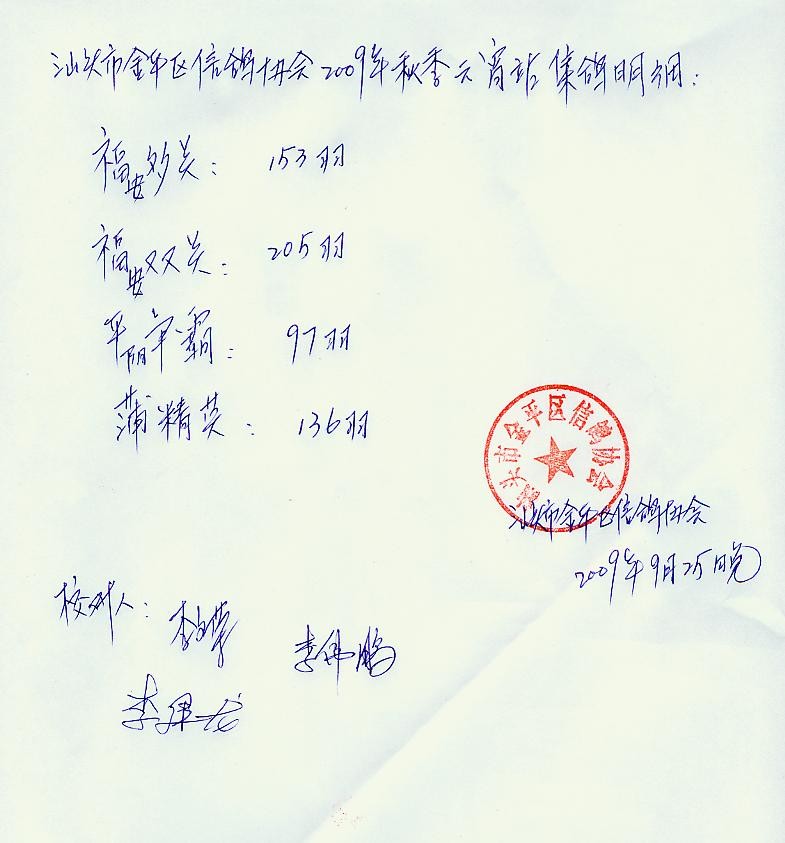 汕头市金平区信鸽协会2009年秋季云霄站集鸽明细:
福安多关: 153羽
福安双关: 205羽
平阳争霸: 97羽
蒲精英: 136羽
汕头市金平区信鸽协会
汕头市金平区信鸽协会
2009年9月25晚
校对人: 李 李伟鹏
李